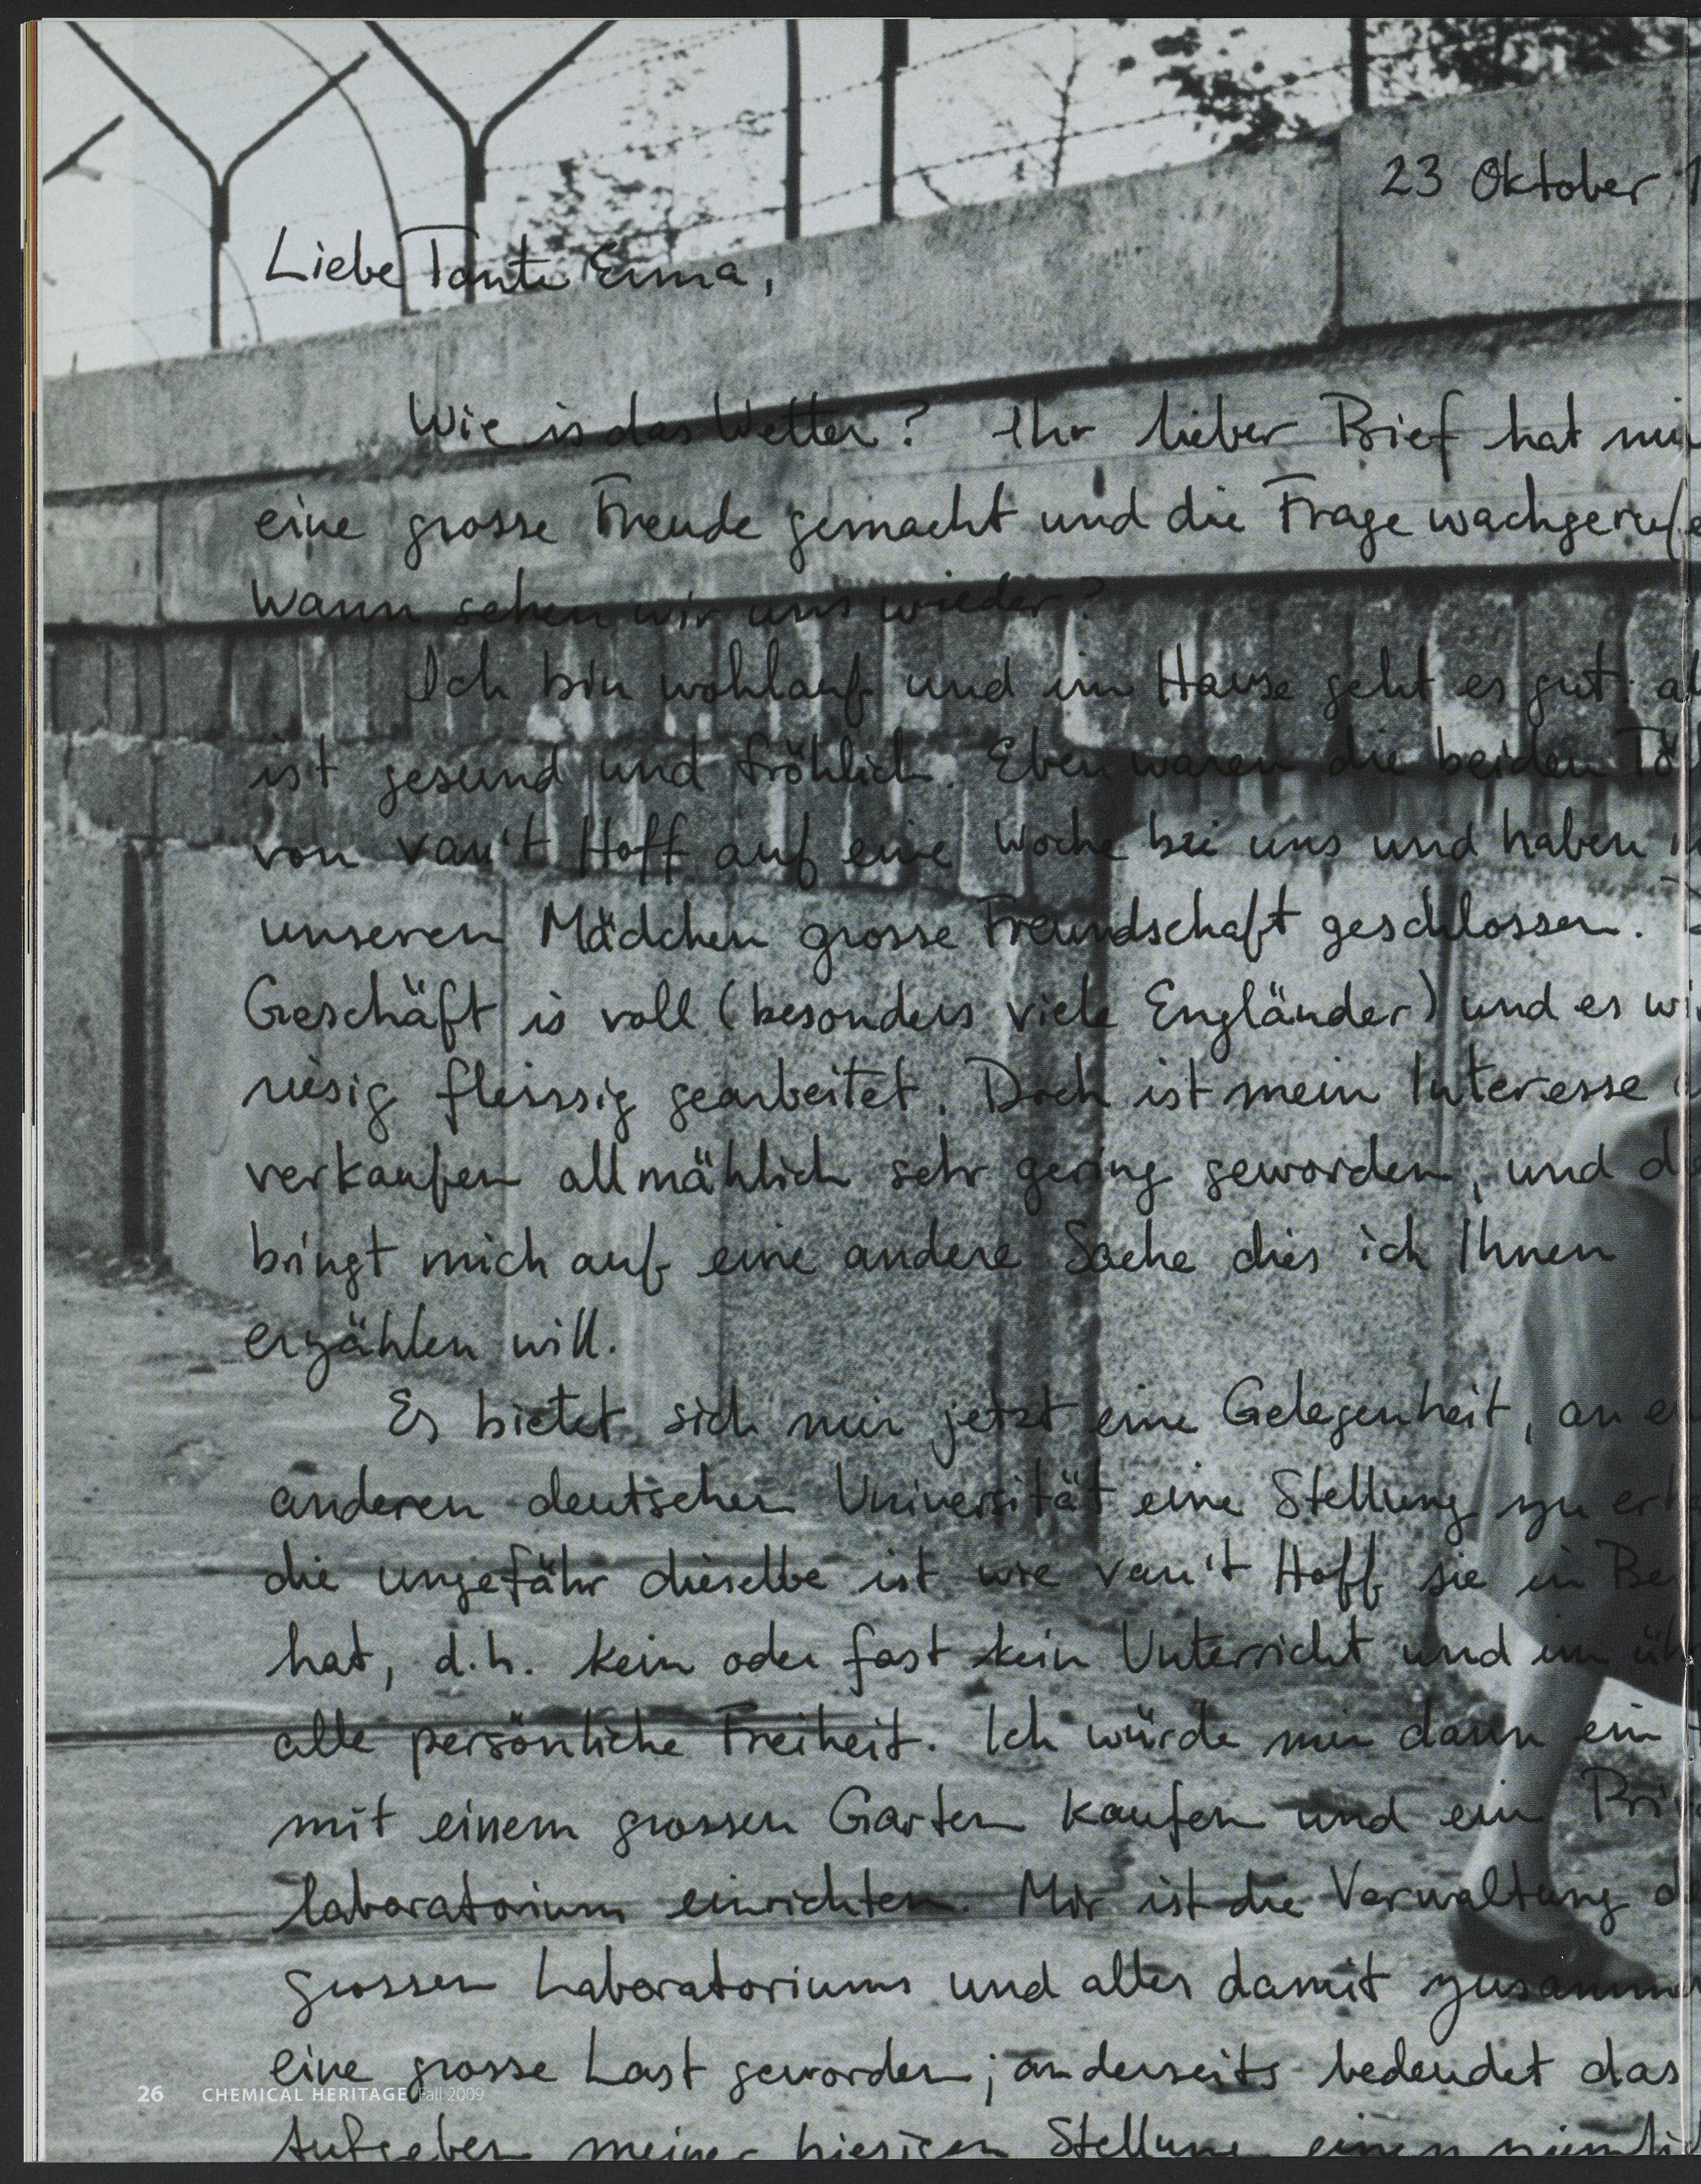 23 Oktober
Liebe Tante Erma,
Wie is das Wetter? Ihr lieber Brief hat
eine grosse Freude gemacht und die Frage wachgeruf
Wann sehen wir uns wieder?
Ich bin wohlauf und im Hause geht es gut:
ist gesund und fröhlich. Eben waren die beiden
von van't Hoff auf eine Woche bei uns und haben
unseren Mädchen grosse Freundschaft geschlossen.
Geschäft is voll (besonders viele Engländer) und es
riesig fleissig gearbeitet. Doch ist mein Interesse
verkaufen allmählich sehr gering geworden, und
bringt mich auf eine andere Sache dies ich Ihnen
erzählen will.
Es bietet sich mir jetzt eine Gelegenheit, an
anderen deutschen Universität eine Stellung zu
die ungefähr dieselbe ist wie van't Hoff sie in
hat, d.h. kein oder fast kein Unterricht und im
alle persönliche Freiheit. Ich würde mir dann ein
mit einem grossen Garten kaufen und ein
laboratorium einrichten. Mir ist die Verwaltung
grossen Laboratoriums und alles damit
eine grosse Last geworden; anderseits bedeudet das
26 CHEMICAL HERITAGE Fall 2009
Aufgeben meiner hiesigen Stellung einen